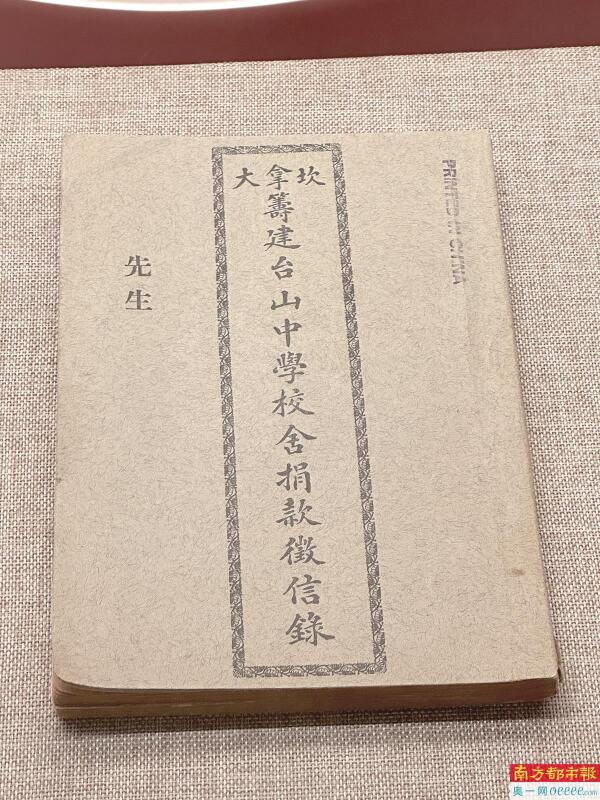 坎拿大
籌建台山中學校舍捐款徵信錄
先生
PRINTED IN CHINA
南方都市報
奥一网oeeee.com